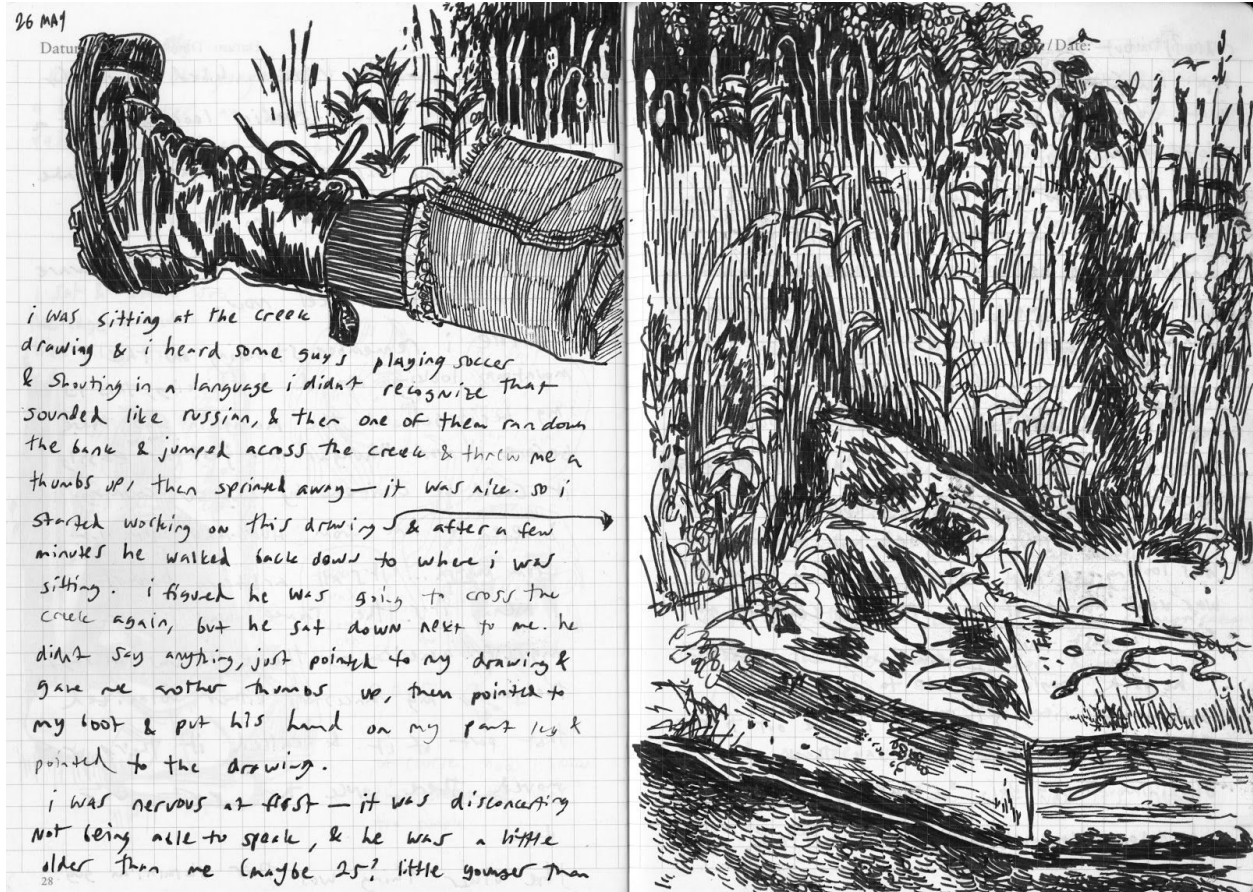 26 MAY
Datum / Date:
i was sitting at the creek
drawing & i heard some guys playing soccer
& shouting in a language i didnt recognize that
sounded like russian, & then one of them ran down
the bank & jumped across the creek & threw me a
thumbs up, then sprinted away — it was nice. so i
started working on this drawing & after a few
minutes he walked back down to where i was
sitting. i figured he was going to cross the
creek again, but he sat down next to me. he
didnt say anything, just pointed to my drawing &
gave me another thumbs up, then pointed to
my boot & put his hand on my pant leg &
pointed to the drawing.
i was nervous at first — it was disconcerting
not being able to speak, & he was a little
older than me (maybe 25? little younger than
28
/ Date: